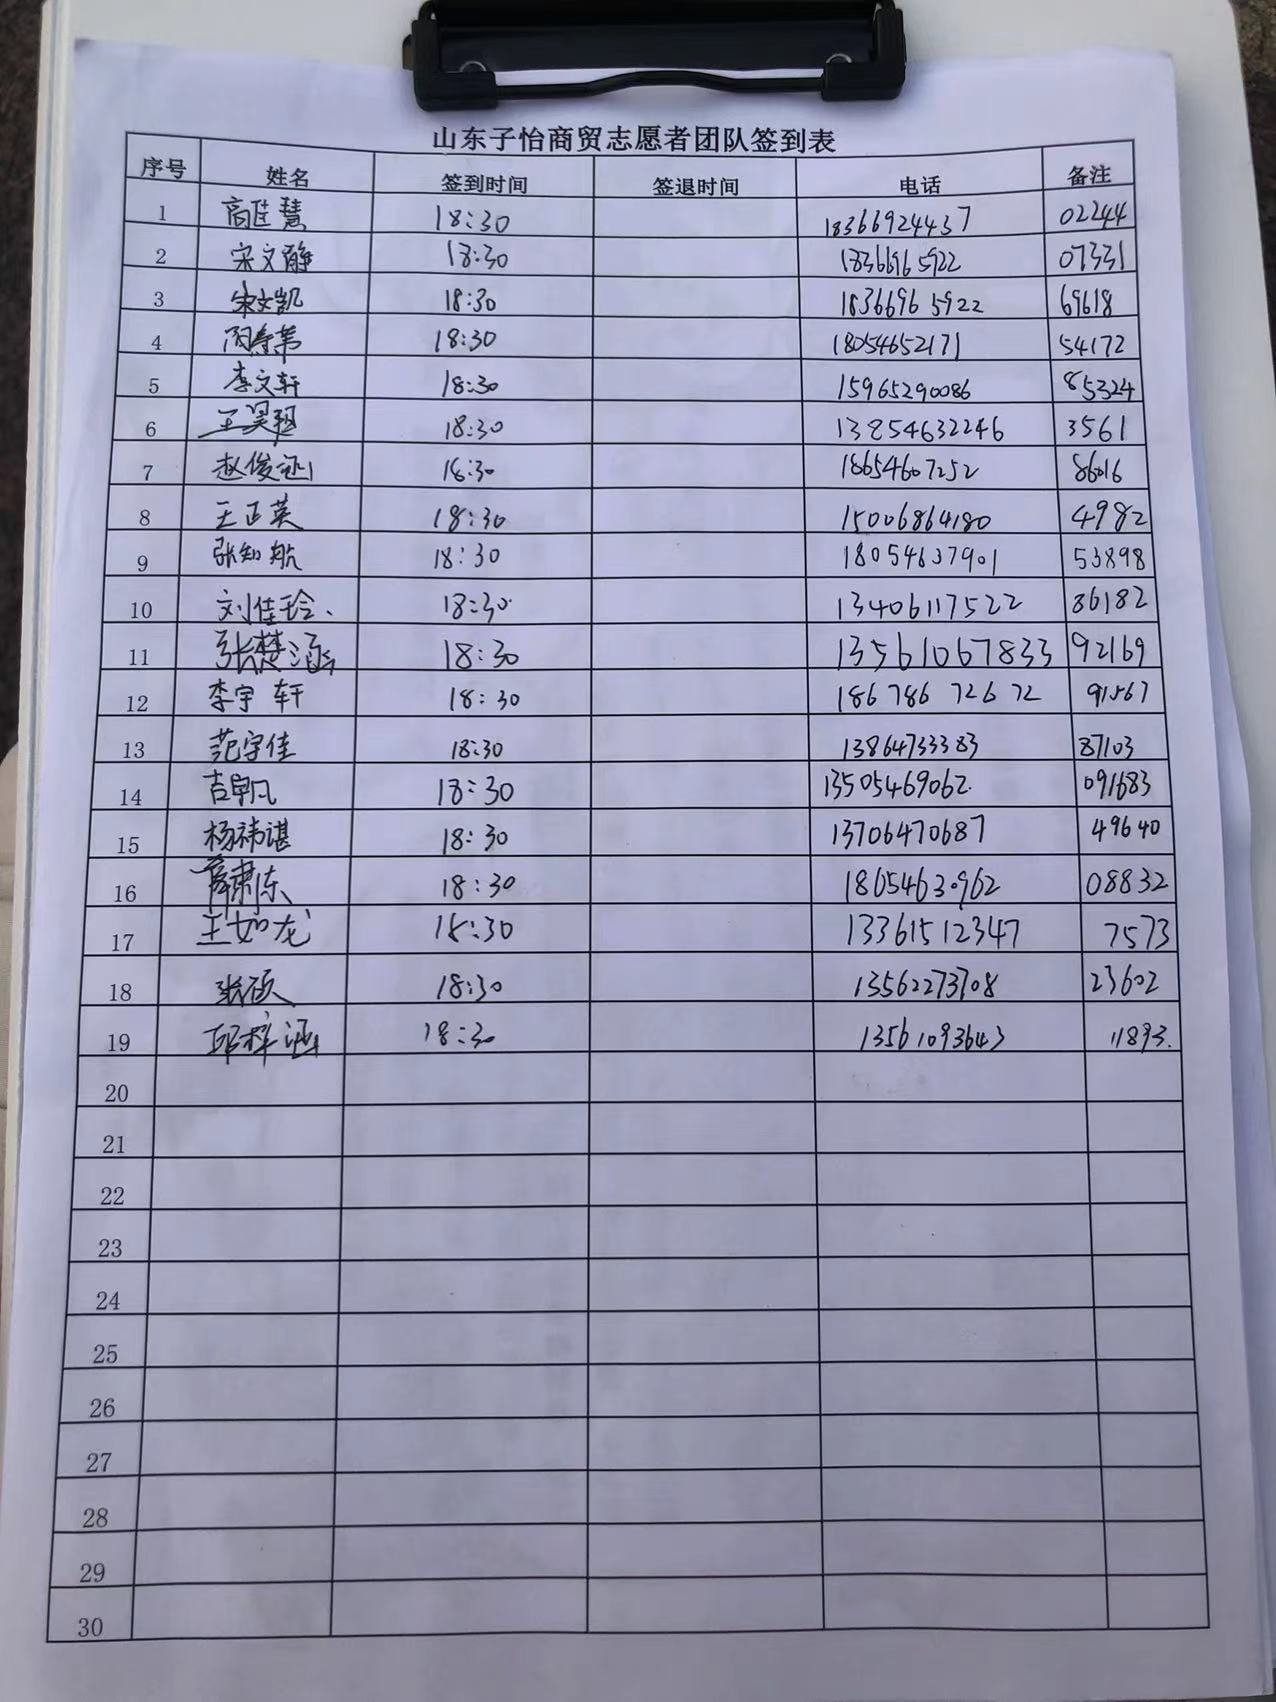 山东子怡商贸志愿者团队签到表
序号 姓名 签到时间 签退时间 电话 备注
1 高佳慧 18:30 18366924437 02244
2 宋文静 18:30 18366965922 07331
3 宋文凯 18:30 18366965922 69618
4 18:30 18054652171 54172
5 李文轩 18:30 15965290086 85324
6 王昊 18:30 13854632246 3561
7 赵俊 18:30 18654607252 86016
8 王正英 18:30 15006864180 4982
9 张知航 18:30 18054637901 53898
10 刘佳玲、 18:30 13406117522 86182
11 张楚涵 18:30 13561067833 92169
12 李宇轩 18:30 186 786 726 72 91567
13 范宇佳 18:30 13864733383 87103
14 吉 凡 18:30 13505469062. 091683
15 杨祎谌 18:30 13706470687 49640
16 东 18:30 18654630962 08832
17 王如龙 18:30 13361512347 7573
18 张硕 18:30 13562273708 23602
19 邱梓涵 18:30 13561093643 11893.
20
21
22
23
24
25
26
27
28
29
30